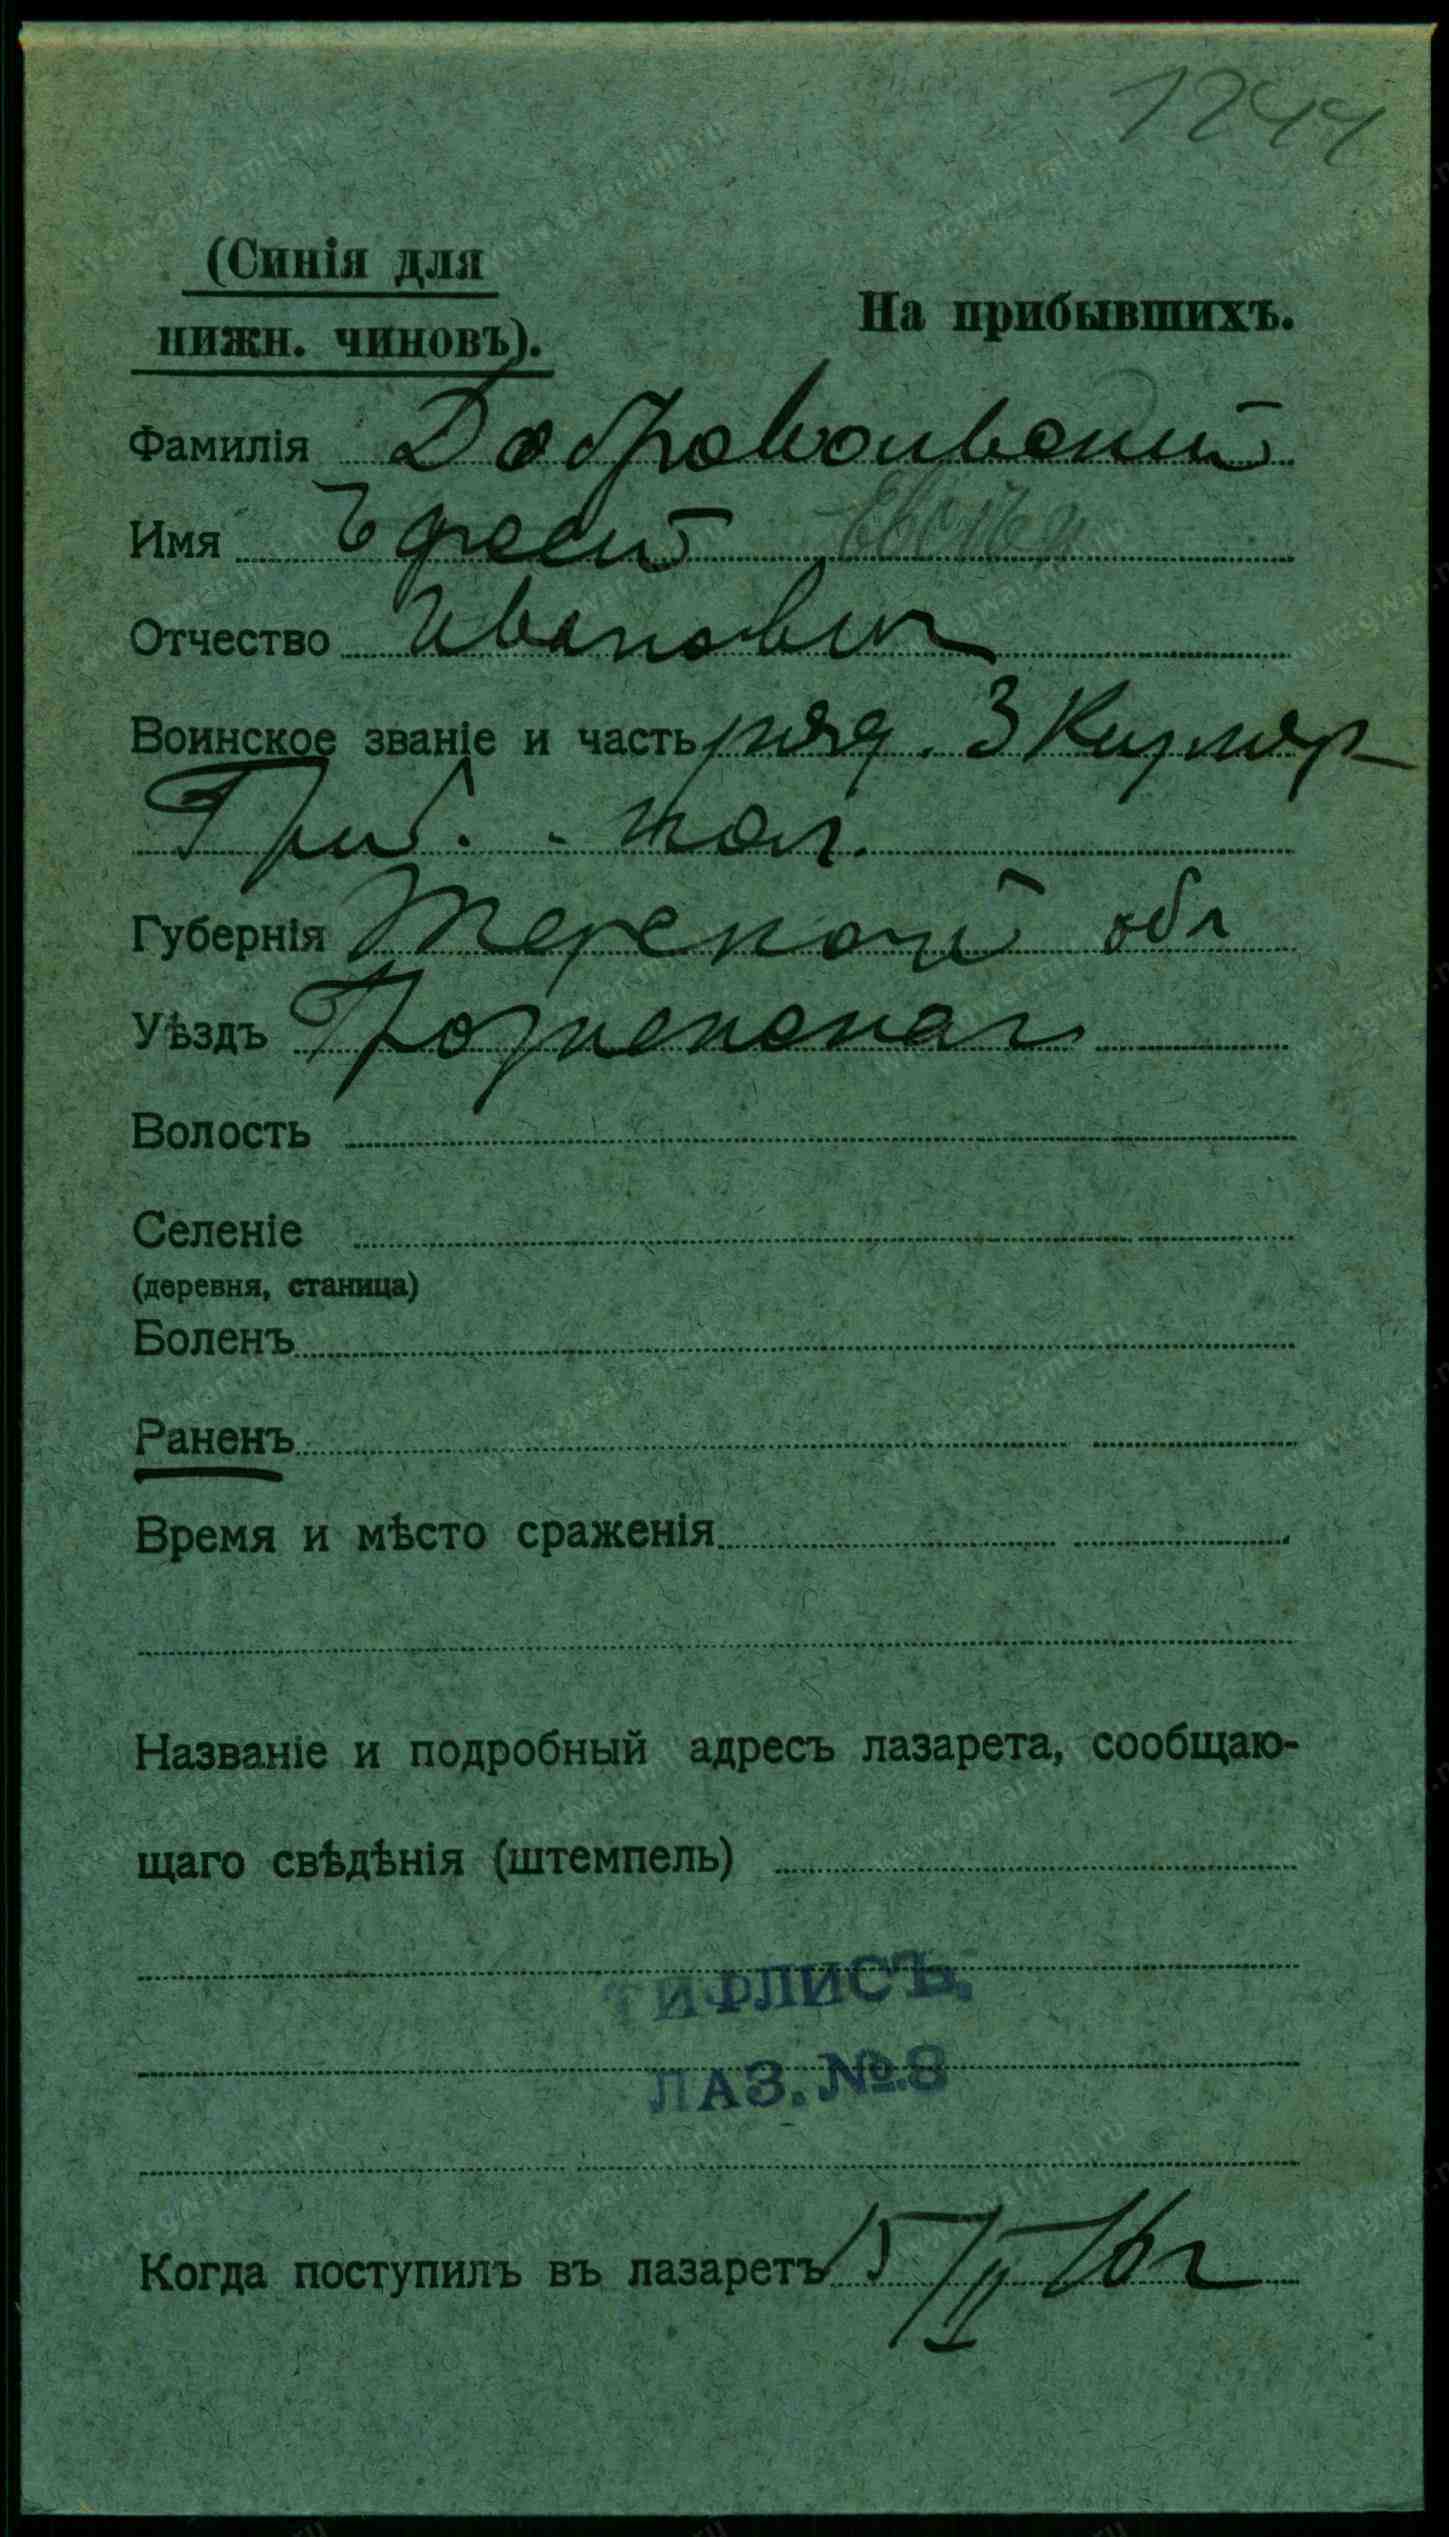 1244
(Синія для
нижн. чиновъ).
На прибывшихъ.
Фамилія Добровольский
Имя
Отчество Иванович
Воинское званіе и часть ряд. 3 Кизляр
Греб. пол.
Губернія Терской обл
Уѣздъ Грозненская
Волость
Селеніе
(деревня, станица)
Боленъ
Раненъ
Время и мѣсто сраженія
Названіе и подробный адресъ лазарета, сообщаю-
щаго свѣдѣнія (штемпель)
ТИФЛИСЪ,
ЛАЗ. №.8
Когда поступилъ въ лазаретъ 15/II 16 г